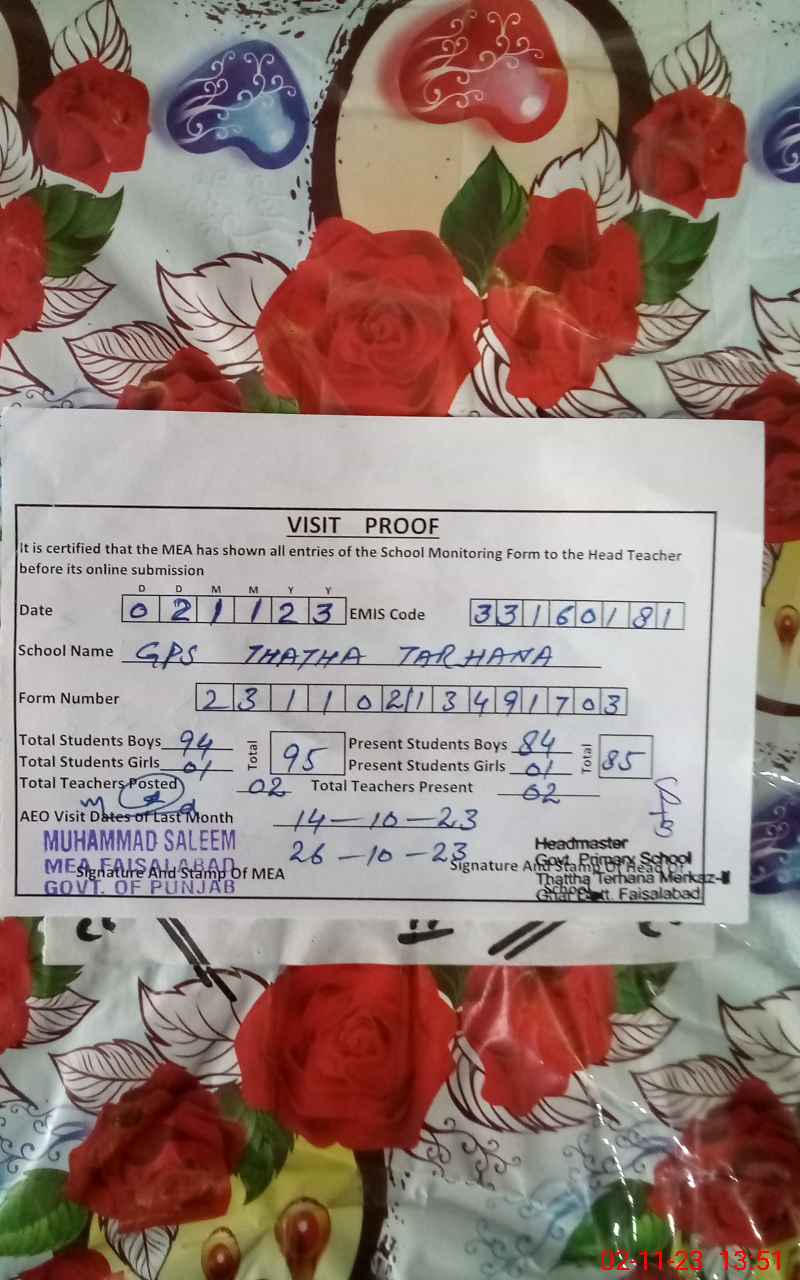 VISIT PROOF
It is certified that the MEA has shown all entries of the School Monitoring Form to the Head Teacher
before its online submission
D D M M Y Y
Date 0 2 1 1 2 3 EMIS Code 3 3 1 6 0 1 8 1
School Name GPS THATHA TARHANA
Form Number 2 3 1 1 0 2 1 3 4 9 1 7 0 3
Total Students Boys 94 Total 95 Present Students Boys 84 Total 85
Total Students Girls 01 Present Students Girls 01
Total Teachers Posted 02 Total Teachers Present 02
AEO Visit Dates of Last Month 14-10-23
26-10-23
MUHAMMAD SALEEM
MEA FAISALABAD
GOVT. OF PUNJAB
Signature And Stamp Of MEA
Signature And Stamp Of Head Of
School
Headmaster
Govt. Primary School
Thattha Terhana Merkaz-II
Distt. Faisalabad
02-11-23 13:51